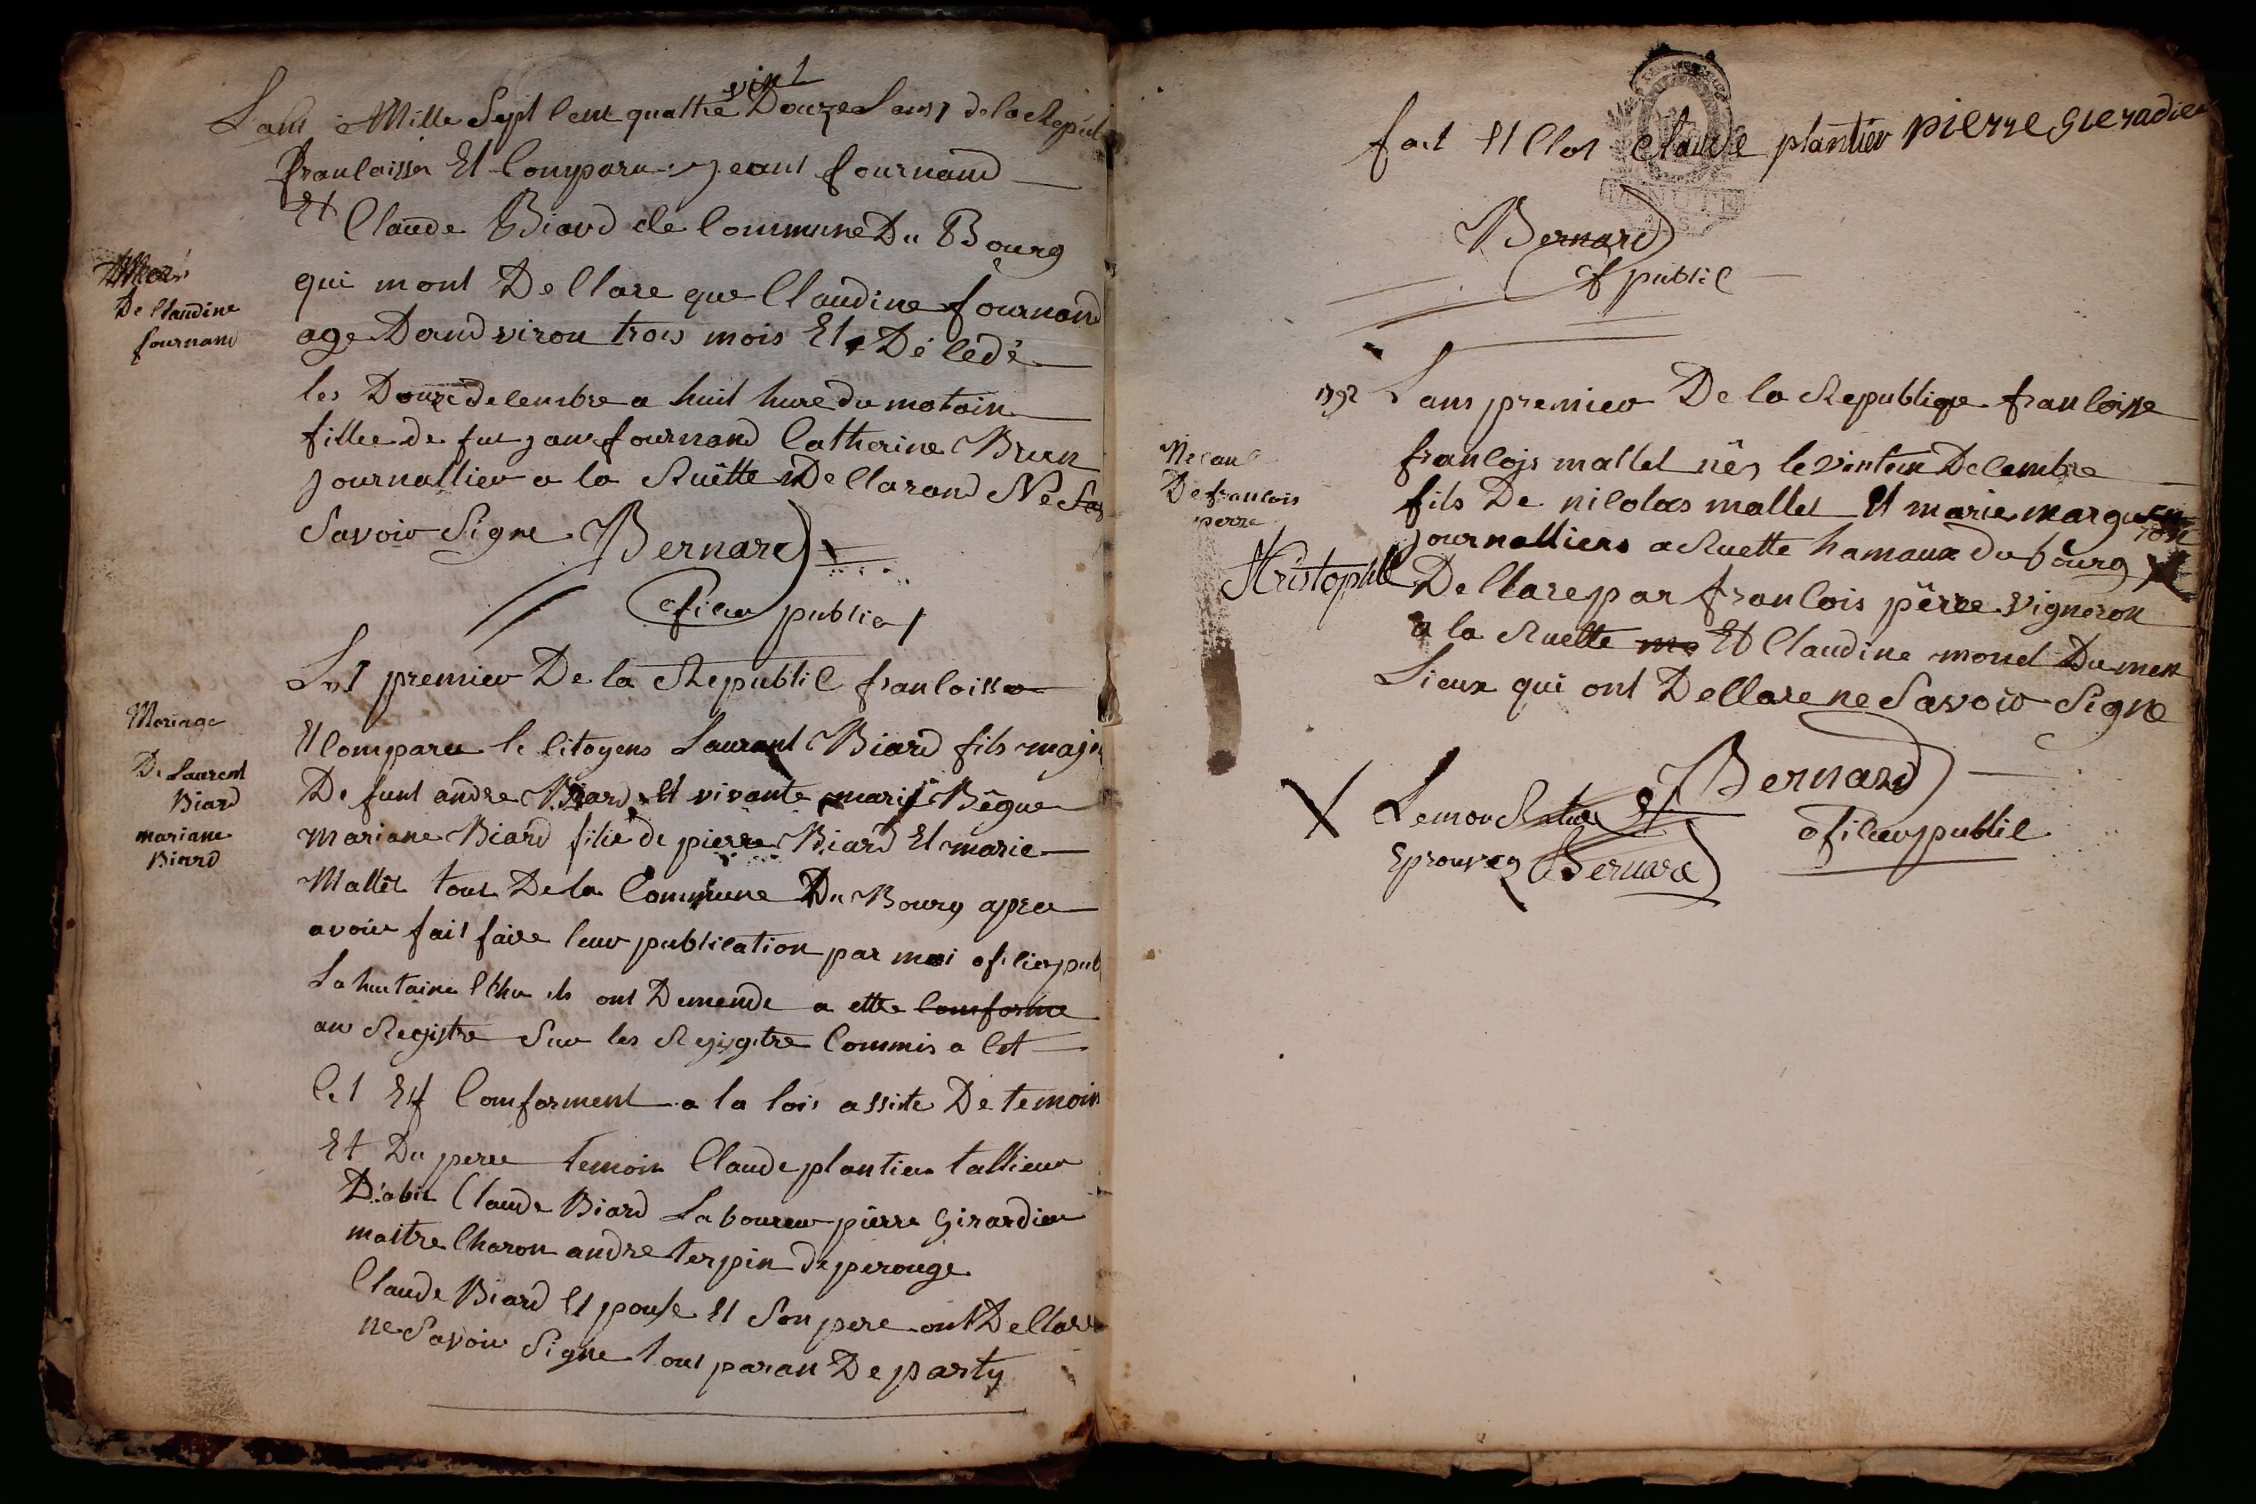 vint
Lant Mille Sept Cent quattre Douze Lans 1 de la Repub
francaisse Et Comparu jeant fournand
Et Claude Biard de Commune Du Bourg
qui mont Declare que Claudine fournand
age Dernd viron trois mois Et Décedé
les Douze decembre a huit hure du matain
fillee de fut jant fournand Catherine Brun
journallier a la Ruëtte Declarand Ne Sas
Savoir Signe Bernard
oficier public
De Claudine
fournand
premier De la Republic francaisse
Et Comparu le Citoyens Laurant Biard fils maj
De funt andre Biard Et vivante marie Bégue
mariane Biard filie de pierre Biard Et marie
Mallet tout De la Commune Du Bourg apree
avoir fait faire leur publication par moi oficier pub
La huitaine Echu ils ont Demende a ettre Comforme
au Registre Sur les Regigtre Commis a Cet
Cet Ef Comforment a la lois assiste De temoin
Et Du pere temoin Claude plantier tallieur
D'abit Claude Biard Laboureur pierre Girardier
maitre Charon andre terpin de perouge
Claude Biard Et pouse Et Son pere ont Declare
ne Savoir Signe tout paran De party
Mariage
De Laurent
Biard
mariane
Biard
fait Et Clos Claude plantier pierre gieradier
Bernard
of public
1792 Lans premier De la Republique francoisse
francois mallet nés le vinteun Decembre
fils De nicolas mallet Et marie margueron
journalliers a Ruette hamaux du bourg
Declare par francois pèrre vigneron
a la Ruette Et Claudine monet Du men
Lieux qui ont Declare ne Savoir Signe
Bernard
oficier public
X
Eprouvez Bernard
De francois
perre